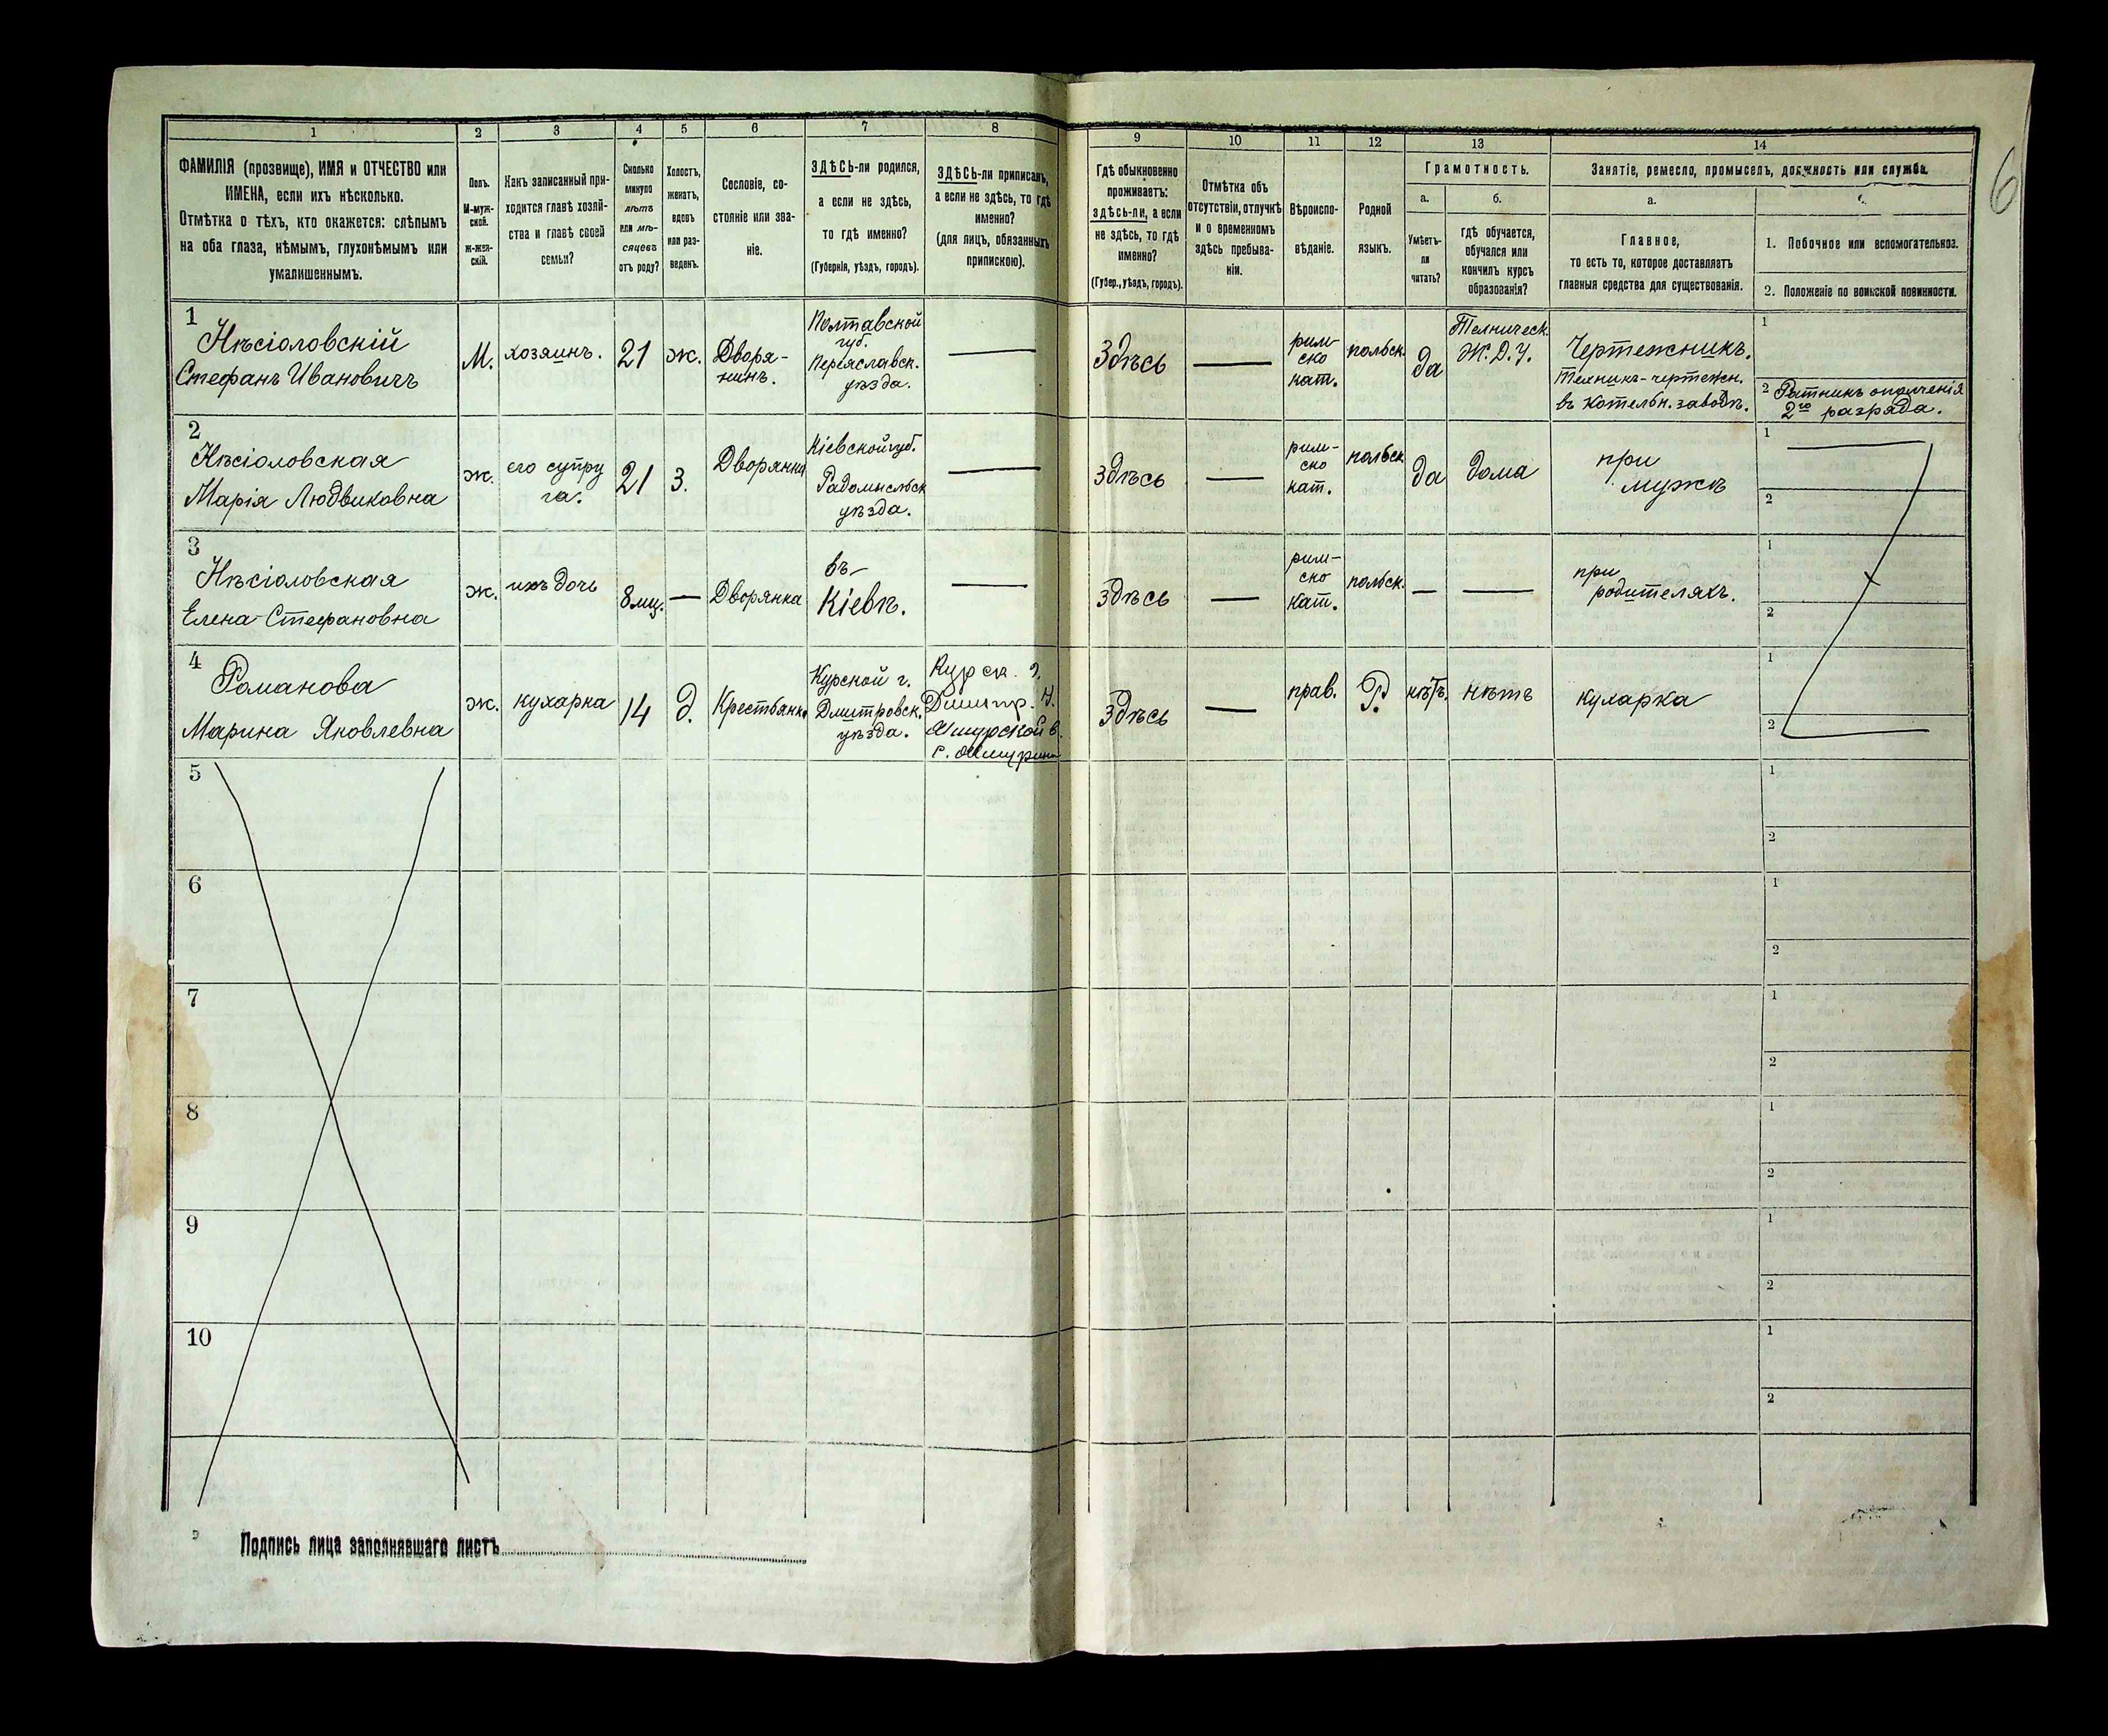 1 2 3 4 5 6 7 8 9 10 11 12 13 14
6
ФАМИЛІЯ (прозвище), ИМЯ и ОТЧЕСТВО или
ИМЕНА, если ихъ нѣсколько.
Отмѣтка о тѣхъ, кто окажется: слѣпымъ
на оба глаза, нѣмымъ, глухонѣмымъ или
умалишеннымъ.
Полъ.
М-муж-
ской.
ж-жен-
скій.
Какъ записанный при-
ходится главѣ хозяй-
ства и главѣ своей
семьи?
Сколько
минуло
лѣтъ
или мѣ-
сяцевъ
отъ роду?
Холостъ,
женатъ,
вдовъ
или раз-
веденъ.
Сословіе, со-
стояніе или зва-
ніе.
ЗДѢСЬ-ли родился,
а если не здѣсь,
то гдѣ именно?
(Губернія, уѣздъ, городъ).
ЗДѢСЬ-ли приписанъ,
а если не здѣсь, то гдѣ
именно?
(для лицъ, обязанныхъ
припискою).
Гдѣ обыкновенно
проживаетъ:
здѣсь-ли, а если
не здѣсь, то гдѣ
именно?
(Губер., уѣздъ, городъ).
Отмѣтка объ
отсутствіи, отлучкѣ
и о временномъ
здѣсь пребыва-
ніи.
Вѣроиспо-
вѣданіе.
Родной
языкъ.
Грамотность.
а.
Умѣетъ-
ли
читать?
б.
гдѣ обучается,
обучался или
кончилъ курсъ
образованія?
Занятіе, ремесло, промыселъ, должность или служба.
а.
Главное,
то есть то, которое доставляетъ
главныя средства для существованія.
1. Побочное или вспомогательное.
2. Положеніе по воинской повинности.
1
Нѣсіоловскій
Стефанъ Ивановичъ
М.
хозяинъ.
21
ж.
Дворя-
нинъ.
Полтавской
губ.
Переяславск.
уѣзда.
Здѣсь
рим-
ско
кат.
польск.
да
Техническ.
Ж.Д.У.
Чертежникъ.
Техникъ-чертежн.
въ котельн. заводѣ.
1
2 Ратникъ ополченія
2го разряда.
2
Нѣсіоловская
Марія Людвиковна
ж.
его супру
га.
21
З.
Дворянка
Кіевской губ.
Радомысльск
уѣзда.
здѣсь
рим-
ско
кат.
польск
да
дома
при
мужѣ
1
2
3
Нѣсіоловская
Елена Стефановна
ж.
ихъ дочь
8 мц.
Дворянка
въ
Кіевѣ.
здѣсь
рим-
ско
кат.
польск.
при
родителяхъ.
1
2
4
Романова
Марина Яковлевна
ж.
кухарка
14
д.
Крестьянк.
Курской г.
Дмитровск.
уѣзда.
Курск. г.
Дмитр. у.
здѣсь
прав.
Р.
нѣтъ.
нѣтъ
кухарка
1
2
5
1
2
6
1
2
7
1
2
8
1
2
9
1
2
10
1
2
Подпись лица заполнявшаго листъ